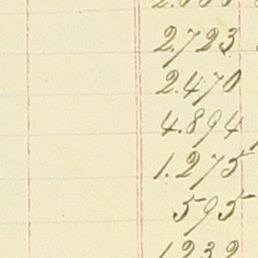 2.723
2.470
4.894
1.275
595
1.232